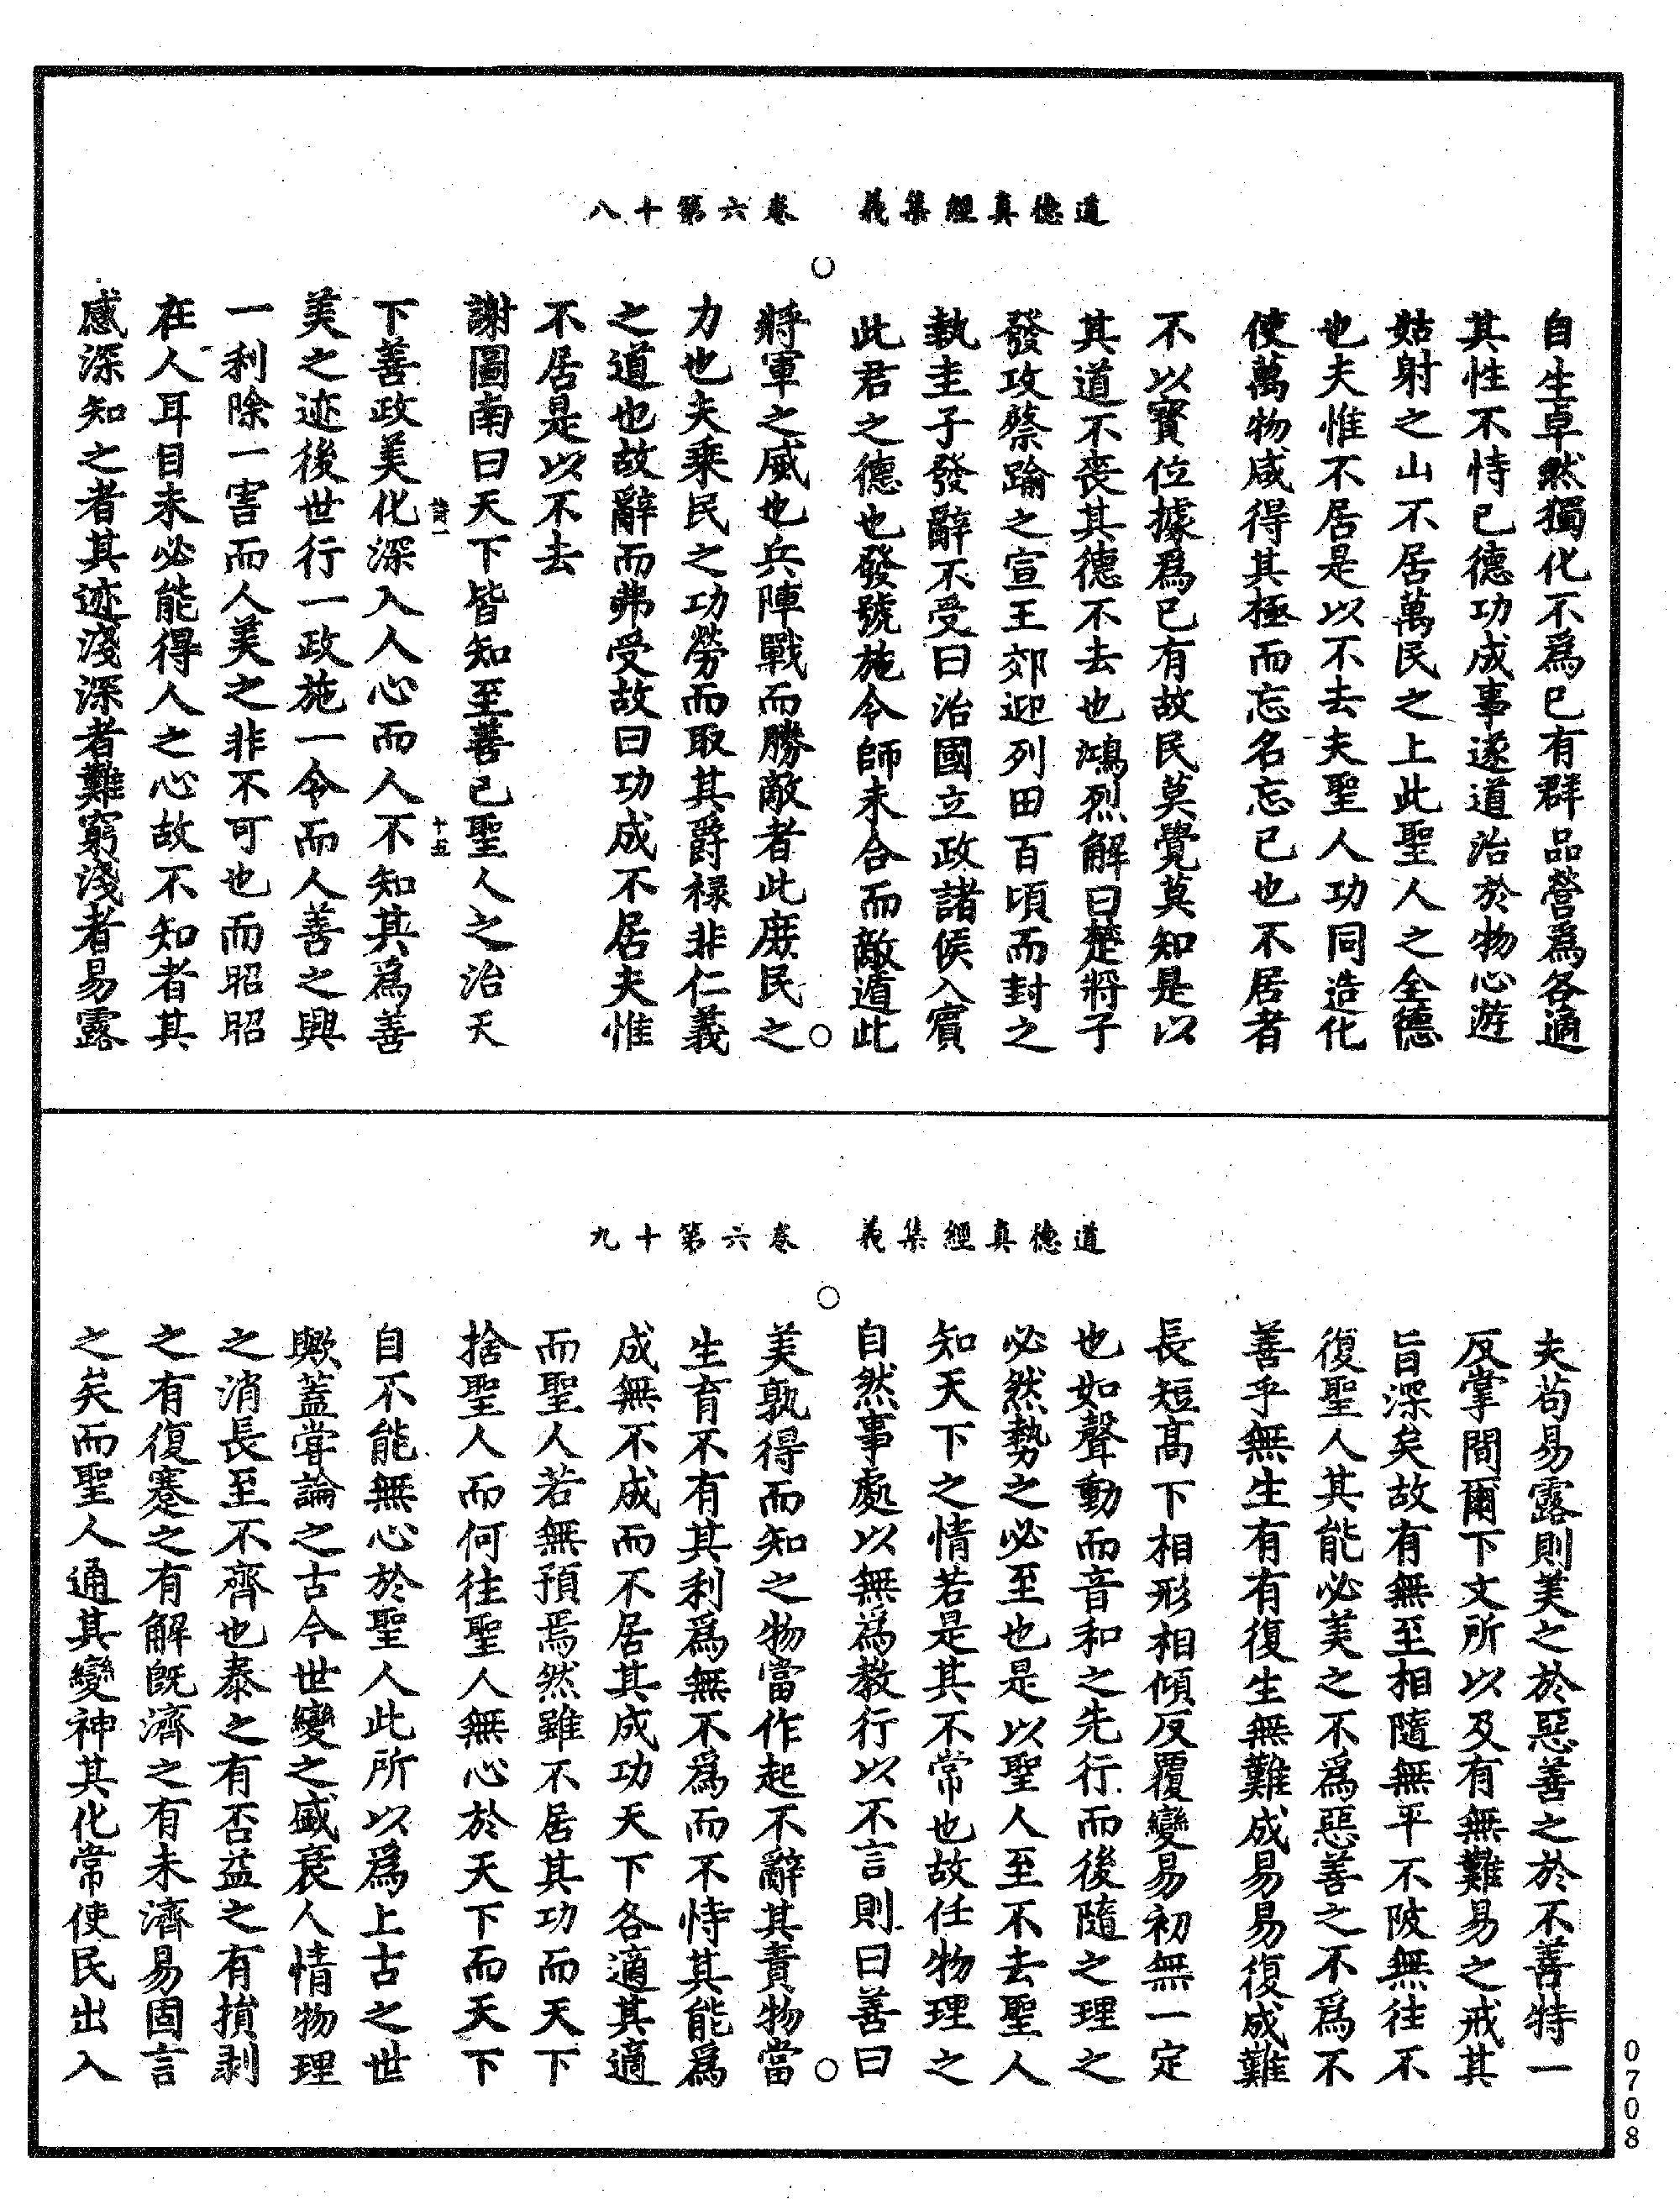 道德真經集義　卷六第十八
自生卓然獨化不爲已有群品營爲各適
其性不恃已德功成事遂道治於物心遊
姑射之山不居萬民之上此聖人之全德
也夫惟不居是以不去夫聖人功同造化
使萬物咸得其極而忘名忘已也不居者
不以寳位據爲已有故民莫覺莫知是以
其道不喪其德不去也鴻烈解曰楚將子
發攻蔡踰之宣王郊迎列田百頃而封之
執圭子發辭不受曰治國立政諸侯入賓
此君之德也發號施令師未合而敵遁此
將軍之威也兵陣戰而勝敵者此庶民之
力也夫乘民之功勞而取其爵禄非仁義
之道也故辭而弗受故曰功成不居夫惟
不居是以不去
謝圖南曰天下皆知至善已聖人之治天
下善政美化深入人心而人不知其爲善
美之迹後世行一政施一令而人善之興
一利除一害而人美之非不可也而昭昭
在人耳目未必能得人之心故不知者其
感深知之者其迹淺深者難窮淺者易露
十五
道德真經集義　卷六第十九
夫苟易露則美之於惡善之於不善特一
反掌間爾下文所以及有無難易之戒其
旨深矣故有無至相隨無平不陂無往不
復聖人其能必美之不爲惡善之不爲不
善乎無生有有復生無難成易易復成難
長短高下相形相傾反覆變易初無一定
也如聲動而音和之先行而後隨之理之
必然勢之必至也是以聖人至不去聖人
知天下之情若是其不常也故任物理之
自然事處以無為教行以不言則曰善曰
美孰得而知之物當作起不辭其責物當
生育不有其利爲無不爲而不恃其能爲
成無不成而不居其成功天下各適其適
而聖人若無預焉然雖不居其功而天下
捨聖人而何往聖人無心於天下而天下
自不能無心於聖人此所以爲上古之世
歟蓋甞論之古今世變之盛衰人情物理
之消長至不齊也泰之有否益之有損剥
之有復蹇之有解既濟之有未濟易固言
之矣而聖人通其變神其化常使民出入
0708